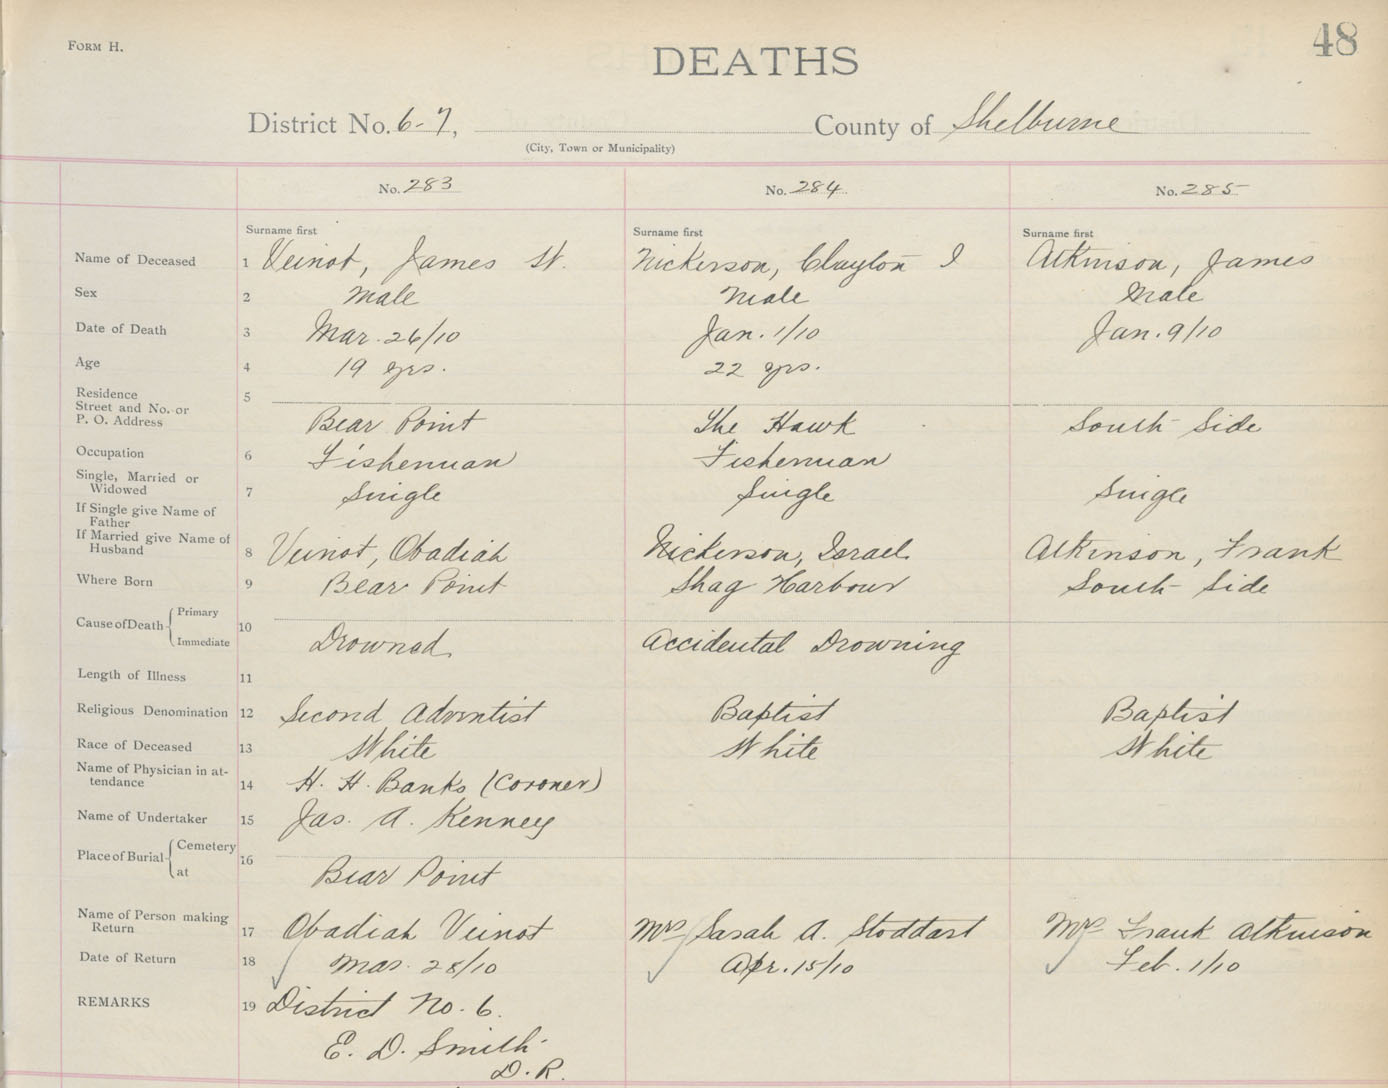 48
FORM H.
DEATHS
District No. 6-7, County of Shelburne
(City, Town or Municipality)
No. 283 No. 284 No. 285
Surname first Surname first Surname first
Name of Deceased 1 Veinot, James W. Nickerson, Clayton I Atkinson, James
Sex 2 Male Male Male
Date of Death 3 Mar. 26/10 Jan. 1/10 Jan. 9/10
Age 4 19 yrs. 22 yrs.
Residence 5
Street and No. or
P. O. Address Bear Point The Hawk South Side
Occupation 6 Fisherman Fisherman
Single, Married or
Widowed 7 Single Single Single
If Single give Name of
Father
If Married give Name of
Husband 8 Veinot, Obadiah Nickerson, Israel Atkinson, Frank
Where Born 9 Bear Point Shag Harbour South Side
Cause of Death Primary 10
Immediate Drowned Accidental Drowning
Length of Illness 11
Religious Denomination 12 Second Adventist Baptist Baptist
Race of Deceased 13 White White White
Name of Physician in at-
tendance 14 H. H. Banks (Coroner)
Name of Undertaker 15 Jas. A. Kenney
Place of Burial Cemetery 16
at Bear Point
Name of Person making
Return 17 Obadiah Veinot Mrs Sarah A. Stoddart Mrs Frank Atkinson
Date of Return 18 Mar. 28/10 Apr. 15/10 Feb. 1/10
REMARKS 19 District No. 6.
E. D. Smith
D. R.